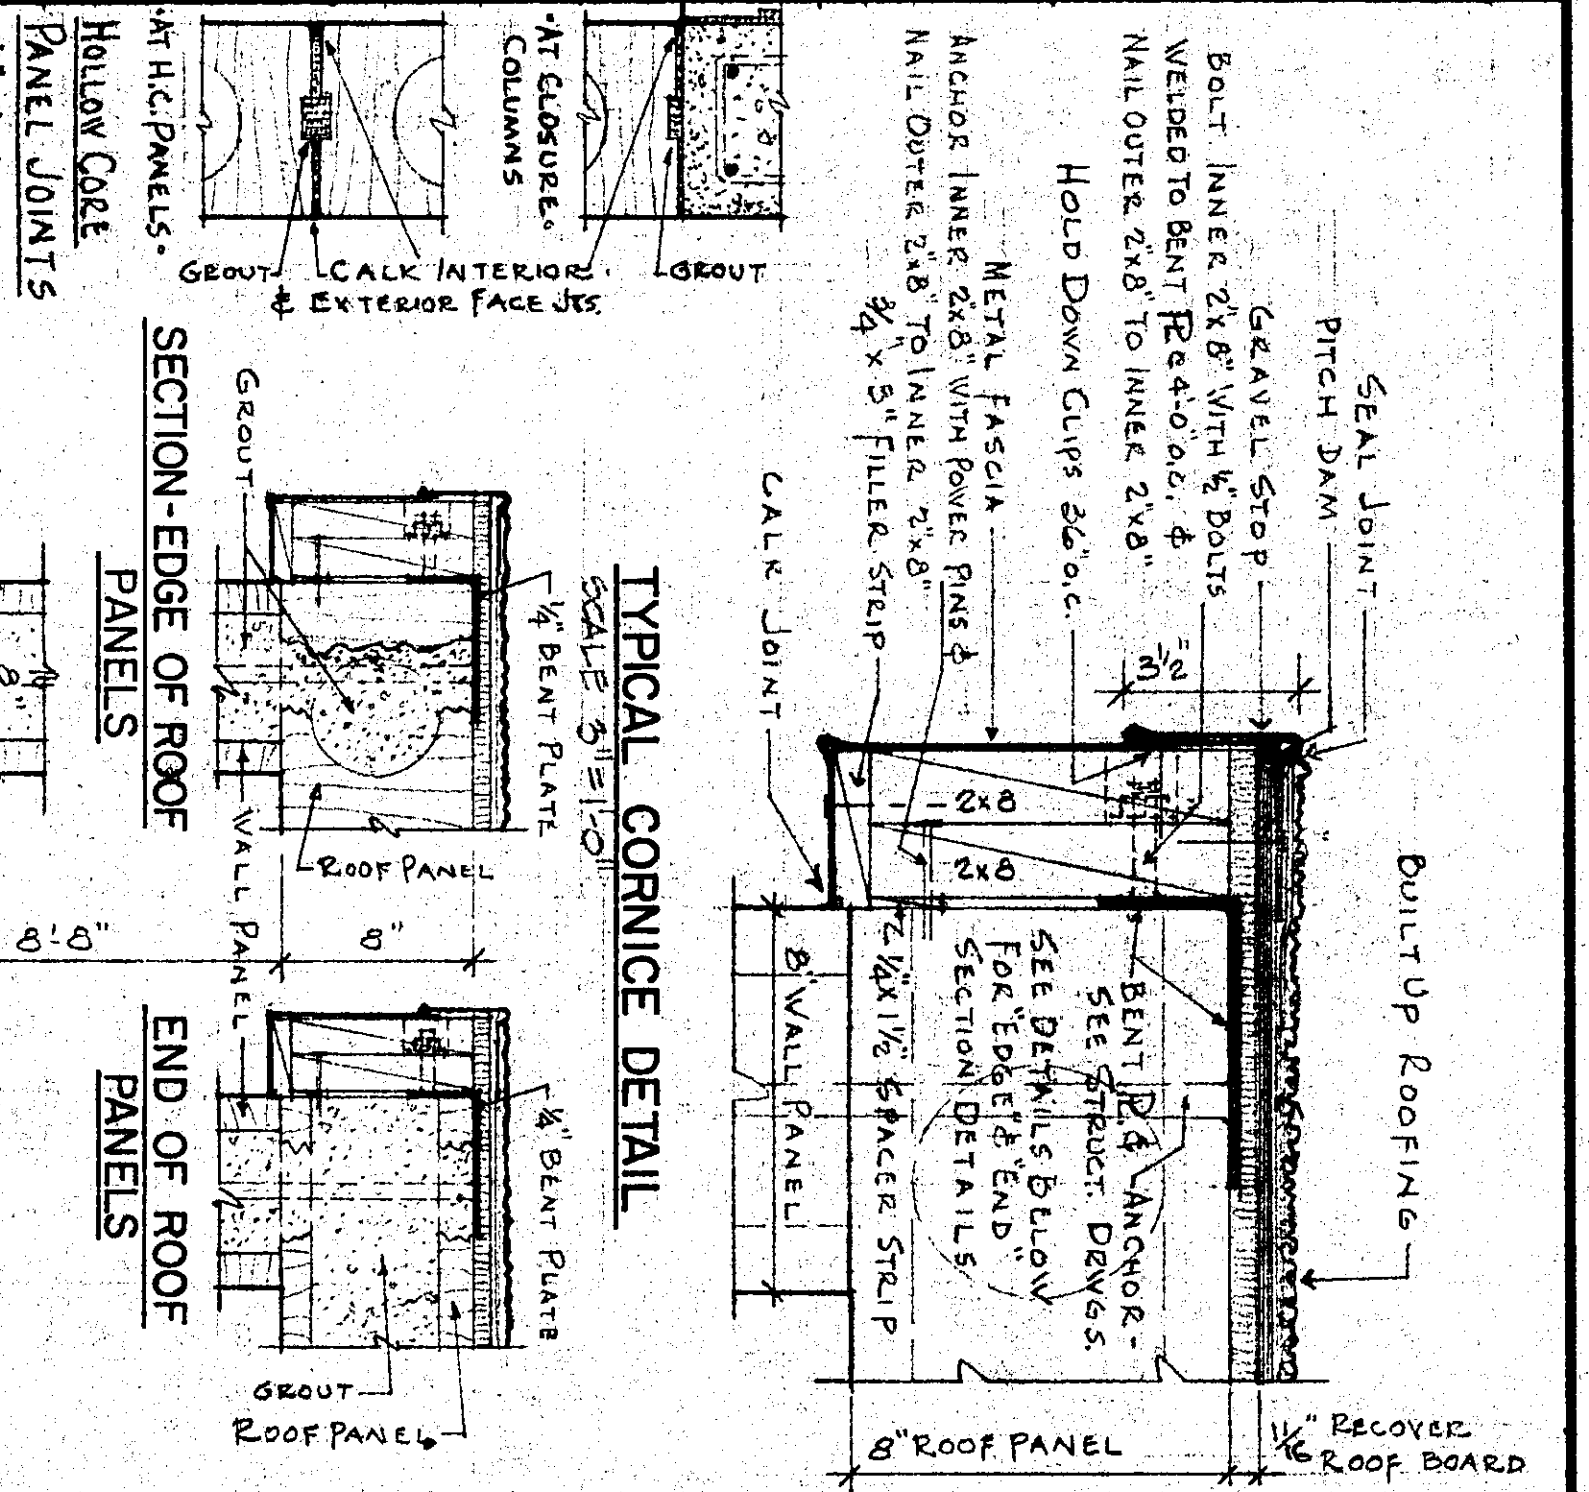 SEAL JOINT
PITCH DAM
GRAVEL STOP
BOLT INNER 2"X8" WITH ½" BOLTS
WELDED TO BENT PL @ 4'-0" O.C. &
NAIL OUTER 2"X8" TO INNER 2"X8"
HOLD DOWN CLIPS 36" O.C.
METAL FASCIA
ANCHOR INNER 2"X8" WITH POWER PINS &
NAIL OUTER 2"X8" TO INNER 2"X8"
¾" X 5" FILLER STRIP
CALK JOINT
3½"
BUILT UP ROOFING
2x8
2x8
BENT PL & ANCHOR-
SEE STRUCT. DRWGS.
SEE DETAILS BELOW
FOR "EDGE" & "END"
SECTION DETAILS
2¼ X 1½" SPACER STRIP
8" WALL PANEL
8" ROOF PANEL
11/16" RECOVER
ROOF BOARD
TYPICAL CORNICE DETAIL
SCALE 3"=1'-0"
"AT CLOSURE"
COLUMNS
GROUT
"AT H.C. PANELS"
GROUT
CALK INTERIOR
& EXTERIOR FACE JTS.
HOLLOW CORE
PANEL JOINTS
¼" BENT PLATE
GROUT
ROOF PANEL
WALL PANEL
SECTION-EDGE OF ROOF
PANELS
8"
8'-8"
8"
¼" BENT PLATE
GROUT
ROOF PANEL
END OF ROOF
PANELS